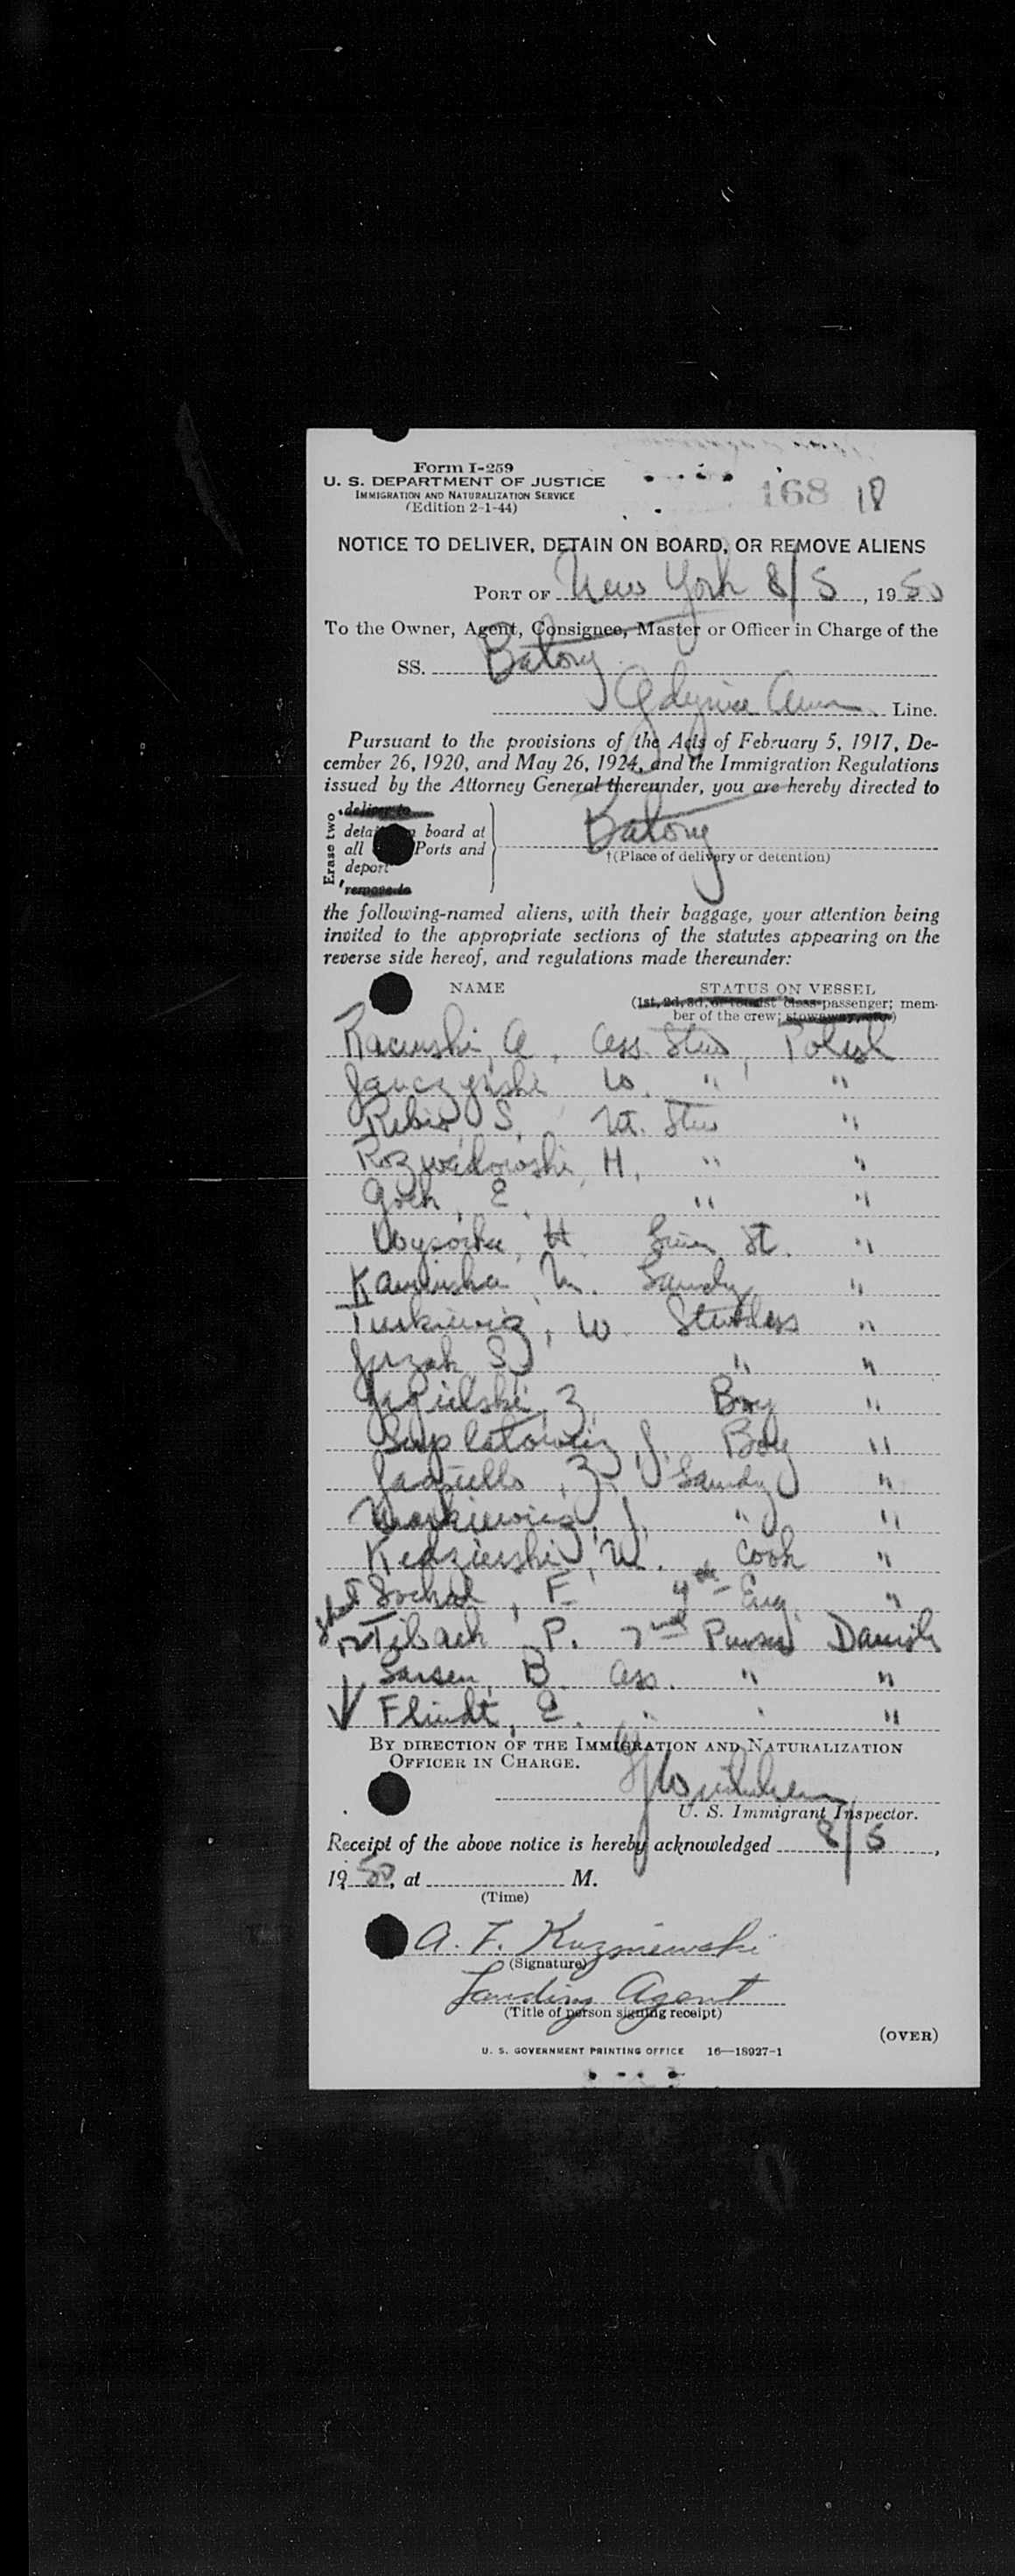 Form I-259
U. S. DEPARTMENT OF JUSTICE
IMMIGRATION AND NATURALIZATION SERVICE
(Edition 2-1-44)
168 18
NOTICE TO DELIVER, DETAIN ON BOARD, OR REMOVE ALIENS
PORT OF New York 8/5, 1950
To the Owner, Agent, Consignee, Master or Officer in Charge of the
SS. Batory
Gdynia Amer Line.
Pursuant to the provisions of the Acts of February 5, 1917, De-
cember 26, 1920, and May 26, 1924, and the Immigration Regulations
issued by the Attorney General thereunder, you are hereby directed to
Erase two
deliver to
detain board at
all Ports and
deport
remove to
Batory
†(Place of delivery or detention)
the following-named aliens, with their baggage, your attention being
invited to the appropriate sections of the statutes appearing on the
reverse side hereof, and regulations made thereunder:
NAME STATUS ON VESSEL
(1st, 2d, 3d, or tourist class passenger; mem-
ber of the crew; stowaway, etc.)
A. Ass. Stew, Polish
W. " "
S. Stew "
Rozwadowski, H. " "
E. " "
Wysocka, H. St. "
Kaminska, M. Laundy "
Turkiewicz, W. Stwdess "
S. " "
Z. Boy "
J. Boy "
Z. Laundy "
Markiewicz, J. " "
Kedzierski, W. Cook "
Sochal, F. 4th Eng. "
P. 2nd Purser Danish
Larsen, B. Ass. " "
Flindt, E. " " "
BY DIRECTION OF THE IMMIGRATION AND NATURALIZATION
OFFICER IN CHARGE.
U. S. Immigrant Inspector.
Receipt of the above notice is hereby acknowledged 8/5,
1950, at M.
(Time)
A. F. Kuzniewski
(Signature)
Landing Agent
(Title of person signing receipt)
(OVER)
U. S. GOVERNMENT PRINTING OFFICE 16—18927-1